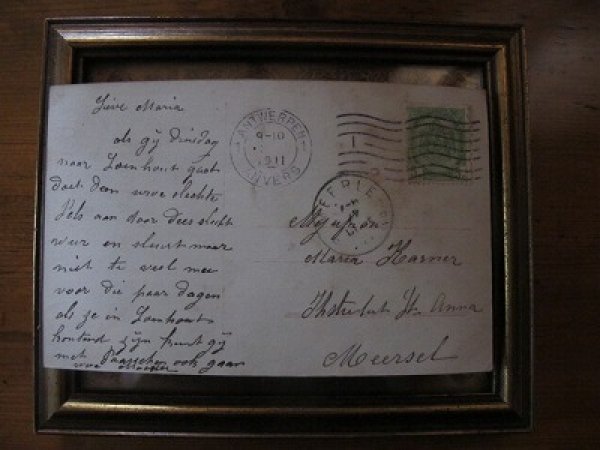 Lieve Maria
als gij Dinsdag
naar Loenhout gaat
doet dan uwe slechte
Pels aan door dees slecht
weer en sleurt maar
niet te veel mee
voor die paar dagen
als ze in Loenhout
houtend zijn gij
met Paasschen ook gaan
uwe Moeder
ANTWERPEN
9-10
1911
ANVERS
1
MEERLE
Mejufron
Maria Kasner
Ste Anna
Meersel